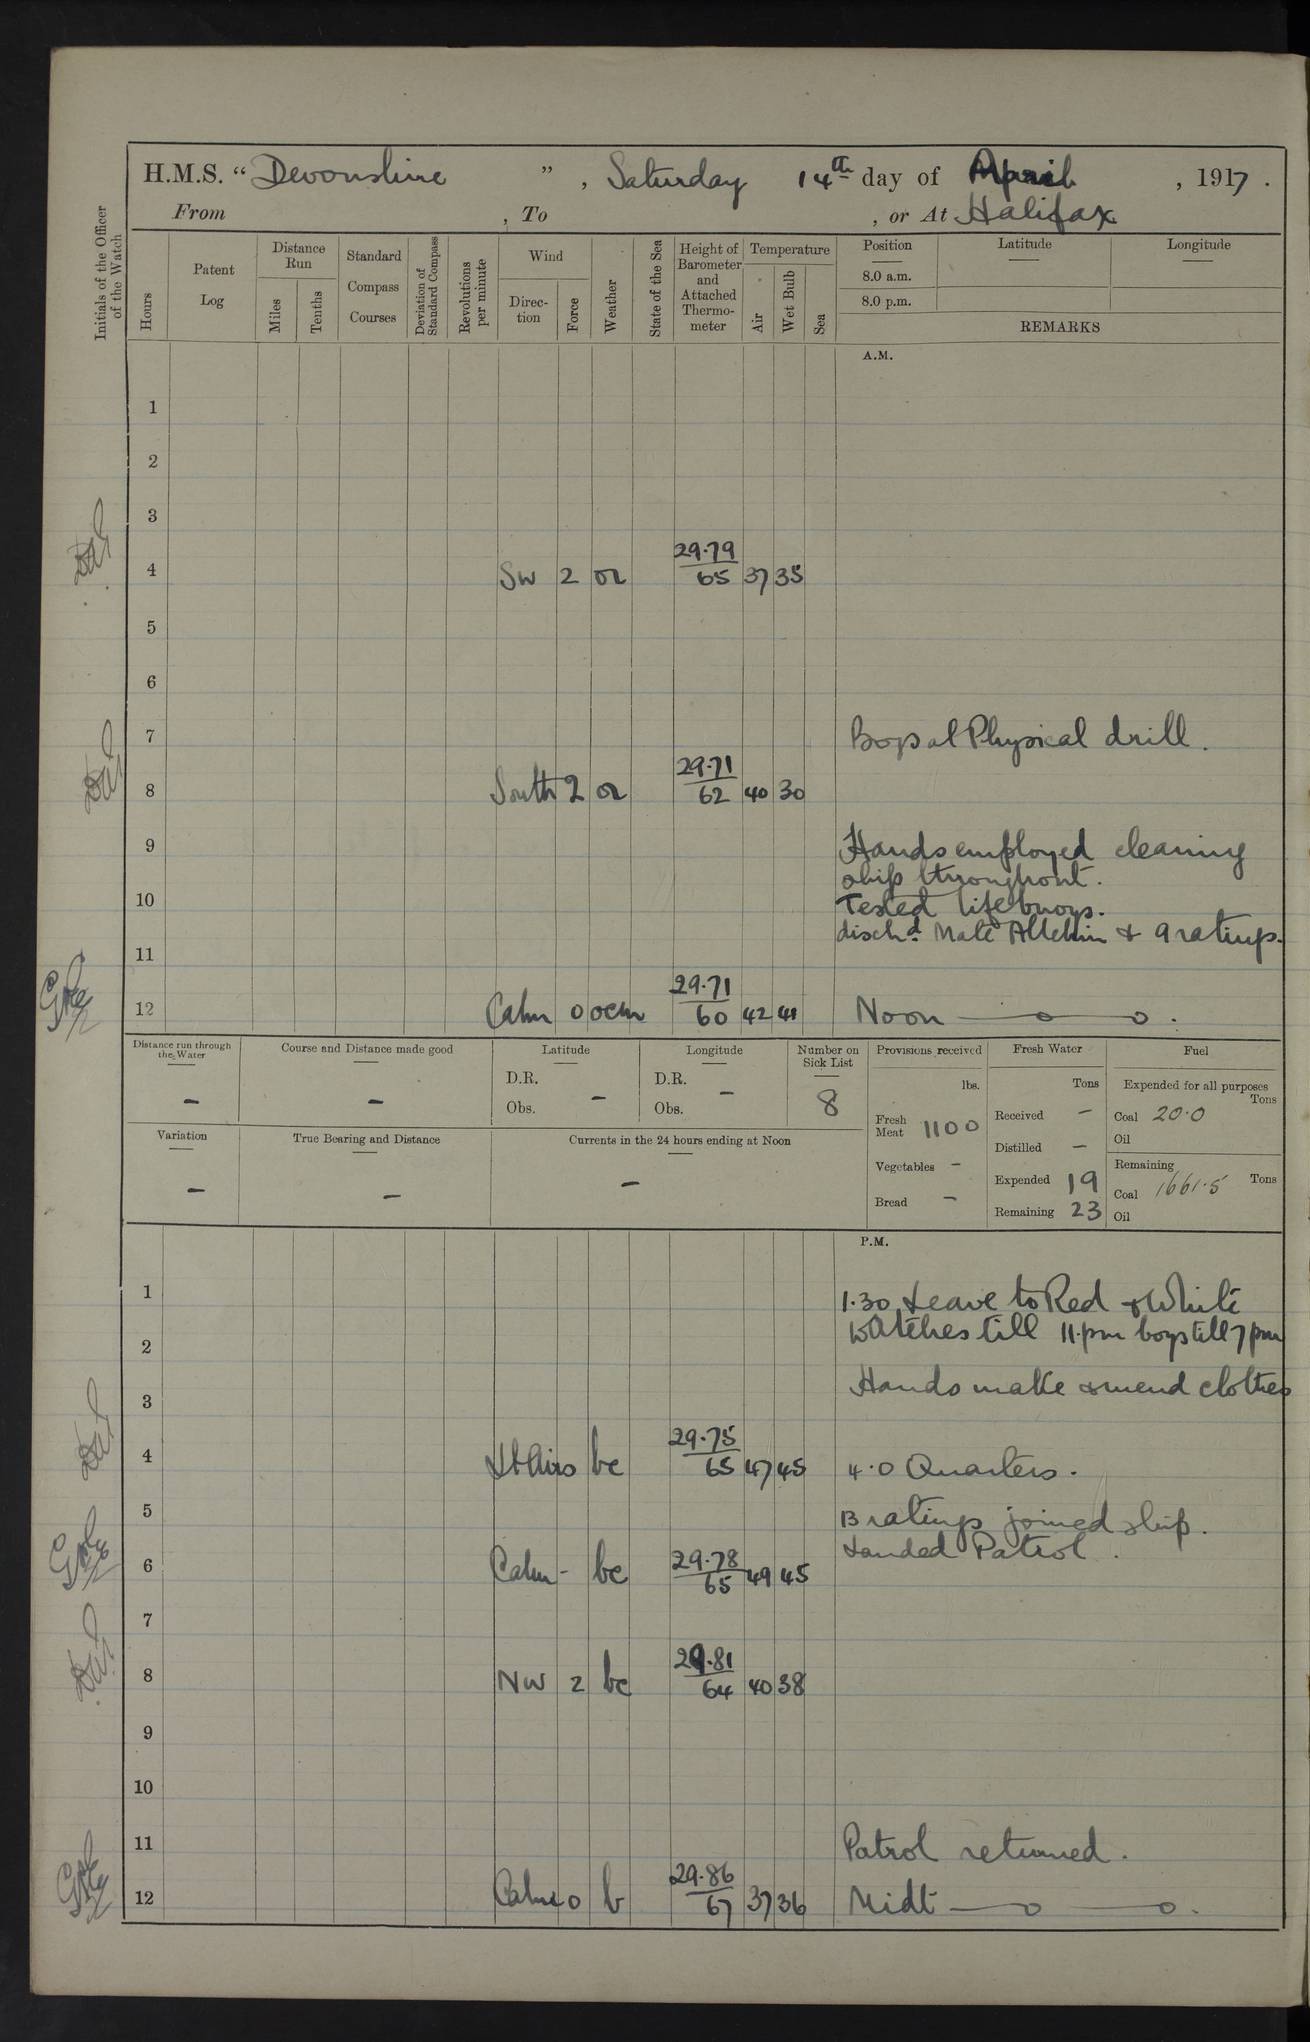 H.M.S. “Devonshire”, Saturday 14th day of April, 1917.
From , To , or At Halifax
Initials of the Officer of the Watch
Hours
Patent Log
Distance Run
Miles
Tenths
Standard Compass Courses
Deviation of Standard Compass
Revolutions per minute
Wind
Direc-tion
Force
Weather
State of the Sea
Height of Barometer and Attached Thermo-meter
Temperature
Air
Wet Bulb
Sea
Position
8.0 a.m.
8.0 p.m.
Latitude
Longitude
REMARKS
A.M.
1
2
3
29.79
4 SW 2 or 65 37 35
5
6
7 Boys at Physical drill.
29.71
8 South 2 or 62 40 30
9 Hands employed cleaning
ship throughout.
10 Tested lifebuoys.
disch'd Mate & 9 ratings.
11
29.71
12 Calm 0 ocm 60 42 41 Noon
Distance run through the Water
-
Course and Distance made good
-
Latitude
D.R.
Obs. -
Longitude
D.R.
Obs. -
Number on Sick List
8
Provisions received
lbs.
Fresh Meat 1100
Vegetables -
Bread -
Fresh Water
Tons
Received -
Distilled -
Expended 19
Remaining 23
Fuel
Expended for all purposes
Tons
Coal 20.0
Oil
Remaining
Coal 1661.5 Tons
Oil
Variation
-
True Bearing and Distance
-
Currents in the 24 hours ending at Noon
-
P.M.
1 1.30 Leave to Red & White
2 watches till 11.pm boys till 7 pm
3 Hands make & mend clothes
29.75
4 Lt Airs bc 65 47 45 4.0 Quarters.
5 13 ratings joined ship.
Landed Patrol.
29.78
6 Calm - bc 65 49 45
7
29.81
8 NW 2 bc 64 40 38
9
10
11 Patrol returned.
29.86
12 Calm 0 b 67 37 36 Midt